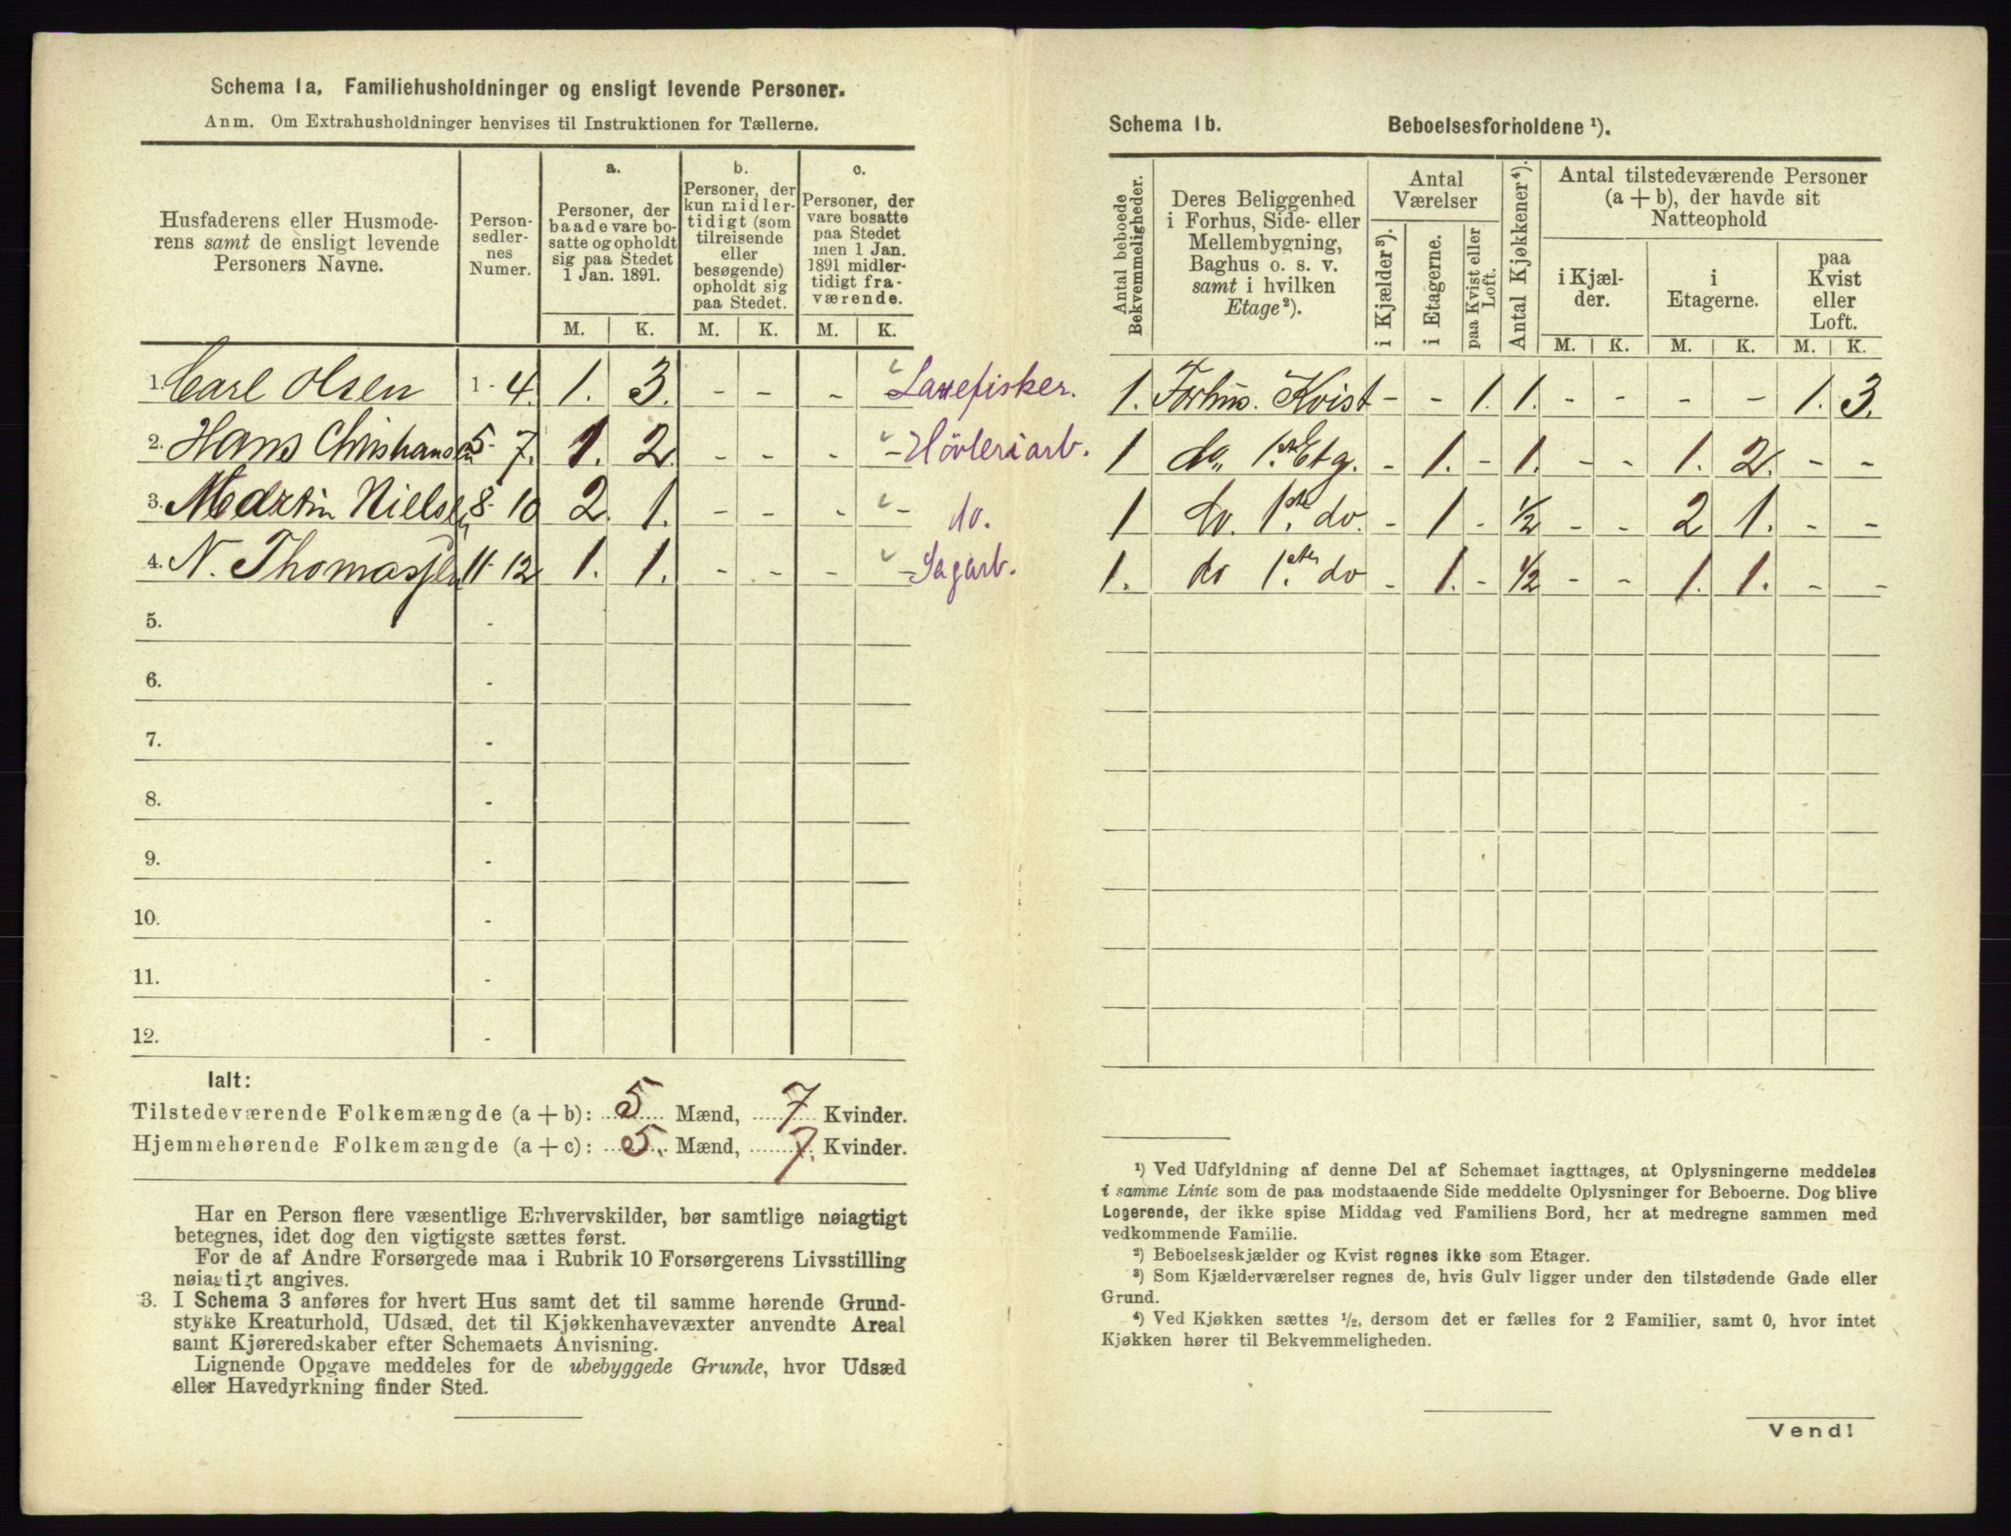 Schema 1a. Familiehusholdninger og ensligt levende Personer.
Anm. Om Extrahusholdninger henvises til Instruktionen for Tællerne.
Husfaderens eller Husmode-
rens samt de ensligt levende
Personers Navne.
Person-
sedler-
nes
Numer.
a.
Personer, der
baade vare bo-
satte og opholdt
sig paa Stedet
1 Jan. 1891.
b.
Personer, der
kun midler-
tidigt (som
tilreisende
eller
besøgende)
opholdt sig
paa Stedet.
c.
Personer, der
vare bosatte
paa Stedet
men 1 Jan.
1891 midler-
tidigt fra-
værende.
M. K. M. K. M. K.
1. Carl Olsen 1 - 4. 1. 3. - - - - Laxefisker.
2. Hans Christiansen 5 - 7. 1. 2. - - - - Hövleriarb.
3. Martin Nielsen 8 - 10 2. 1. - - - - do.
4. N. Thomassen 11 - 12 1. 1. - - - - Sagarb.
5. -
6. -
7. -
8. -
9. -
10. -
11. -
12. -
Ialt:
Tilstedeværende Folkemængde (a + b): 5 Mænd, 7 Kvinder.
Hjemmehørende Folkemængde (a + c): 5. Mænd, 7. Kvinder.
Har en Person flere væsentlige Erhvervskilder, bør samtlige nøiagtigt
betegnes, idet dog den vigtigste sættes først.
For de af Andre Forsørgede maa i Rubrik 10 Forsørgerens Livsstilling
nøiagtigt angives.
3. I Schema 3 anføres for hvert Hus samt det til samme hørende Grund-
stykke Kreaturhold, Udsæd, det til Kjøkkenhavevæxter anvendte Areal
samt Kjøreredskaber efter Schemaets Anvisning.
Lignende Opgave meddeles for de ubebyggede Grunde, hvor Udsæd
eller Havedyrkning finder Sted.
Schema 1b. Beboelsesforholdene ¹).
Antal beboede
Bekvemmeligheder.
Deres Beliggenhed
i Forhus, Side- eller
Mellembygning,
Baghus o. s. v.
samt i hvilken
Etage²).
Antal
Værelser
i Kjælder³).
i Etagerne.
paa Kvist eller
Loft.
Antal Kjøkkener⁴).
Antal tilstedeværende Personer
(a + b), der havde sit
Natteophold
i Kjæl-
der.
i
Etagerne.
paa
Kvist
eller
Loft.
M. K. M. K. M. K.
1. Forhus. Kvist - - 1. 1. - - - - 1. 3.
1 do. 1ste Etg. - 1. - 1. - - 1. 2. - -
1 do. 1ste do. - 1 - ½ - - 2 1. - -
1. do 1ste do - 1. - ½ - - 1. 1. - -
¹) Ved Udfyldning af denne Del af Schemaet iagttages, at Oplysningerne meddeles
i samme Linie som de paa modstaaende Side meddelte Oplysninger for Beboerne. Dog blive
Logerende, der ikke spise Middag ved Familiens Bord, her at medregne sammen med
vedkommende Familie.
²) Beboelseskjælder og Kvist regnes ikke som Etager.
³) Som Kjælderværelser regnes de, hvis Gulv ligger under den tilstødende Gade eller
Grund.
⁴) Ved Kjøkken sættes ½, dersom det er fælles for 2 Familier, samt 0, hvor intet
Kjøkken hører til Bekvemmeligheden.
Vend!